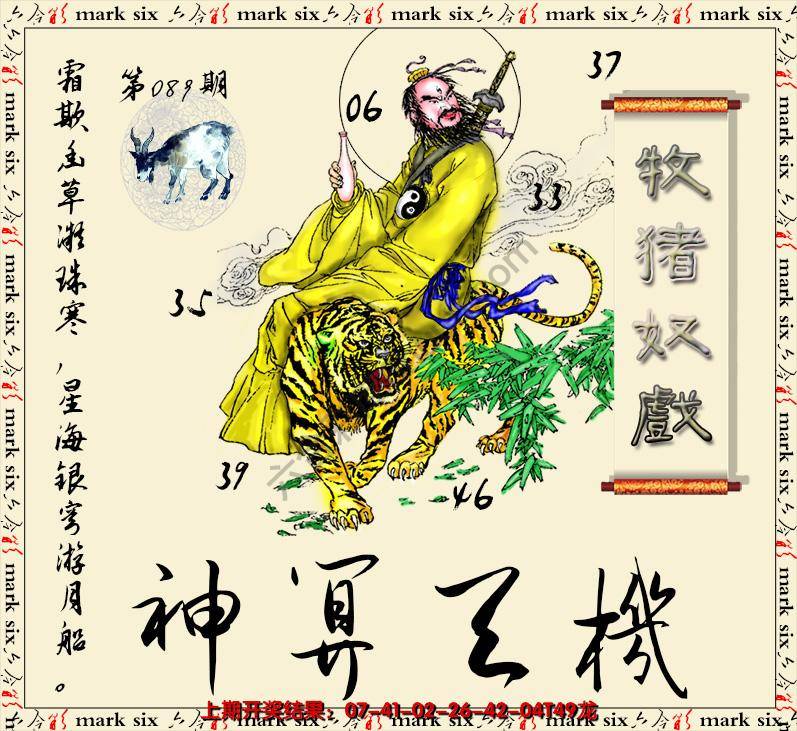 mark six 六合彩 mark six 六合彩 mark six 六合彩 mark six 六合彩 mark six
第089期
霜欺毛草凝珠寒，星海银穹游月船。
37
06
33
35
39
46
牧猪奴戲
神算天機
上期开奖结果：07-41-02-26-42-04T49龙